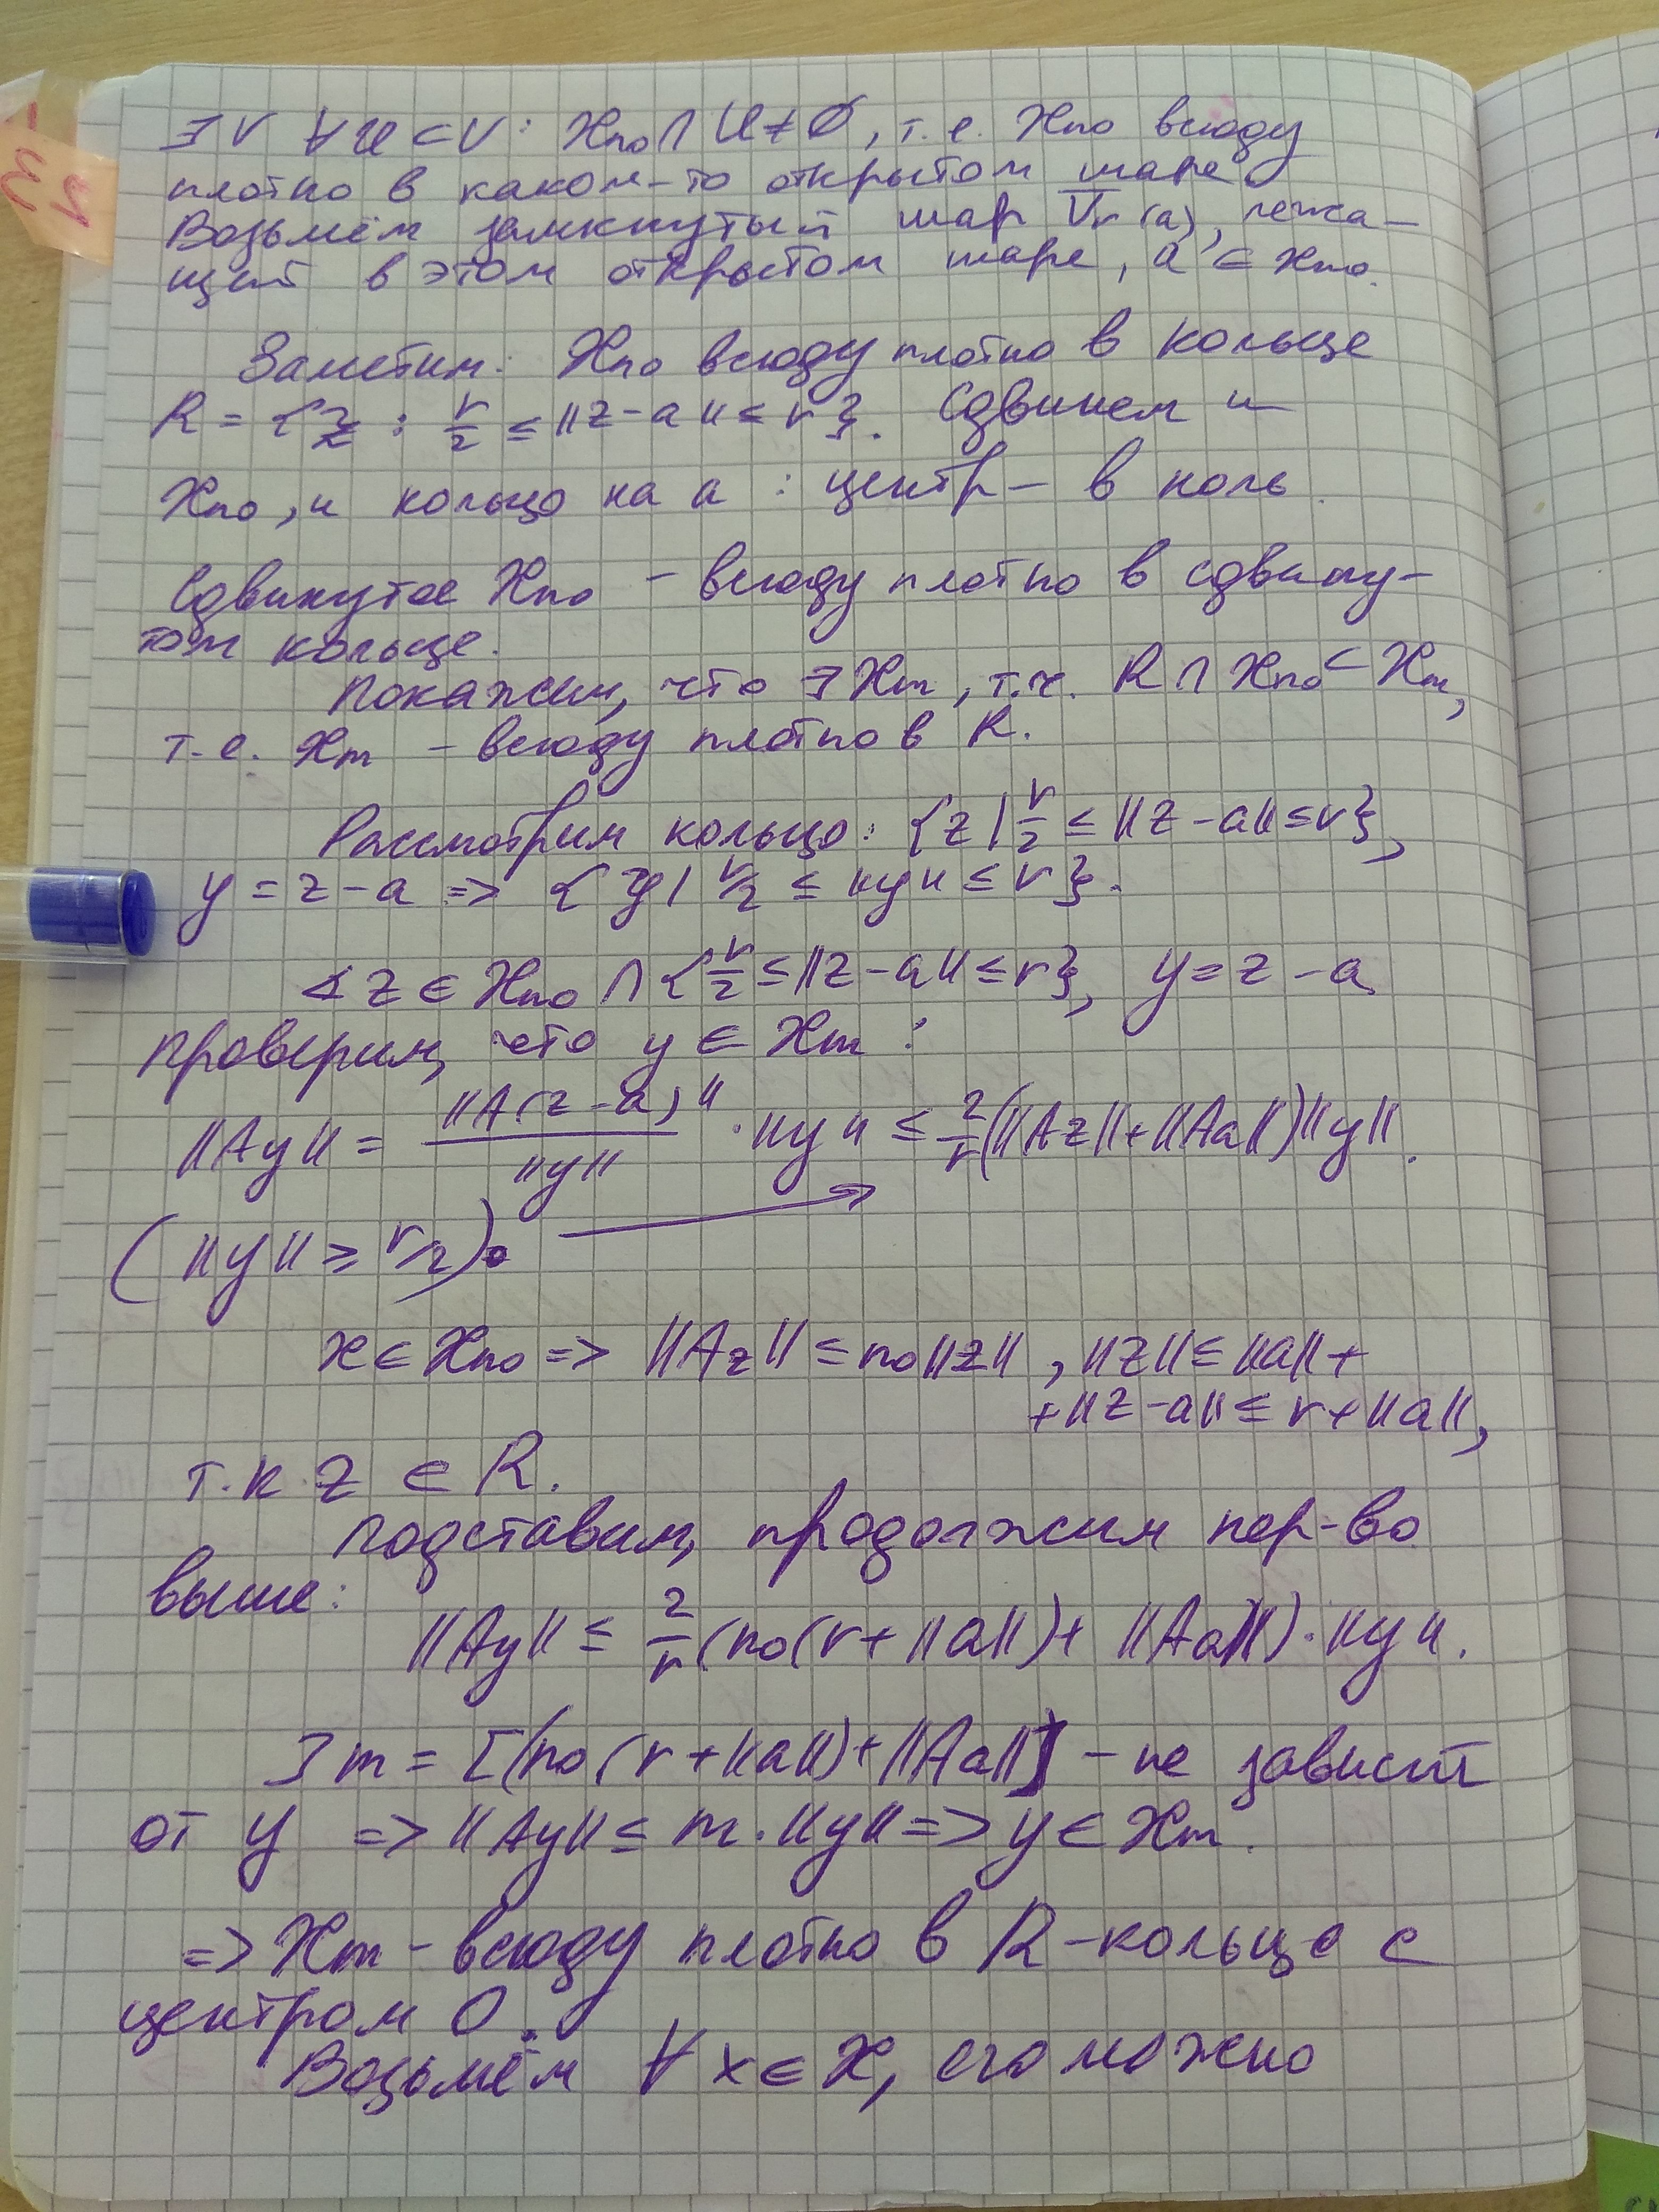 ∃V ∀U⊂V: Xn₀∩U≠∅, т.е. Xn₀ всюду
плотно в каком-то открытом шаре.
Возьмём замкнутый шар V̅r(a), лежа-
щий в этом открытом шаре, a ∈ Xn₀.
Заметим: Xn₀ всюду плотно в кольце
R = {z : r/2 ≤ ||z-a|| ≤ r}. Сдвинем и
Xn₀, и кольцо на a : центр – в ноль
Сдвинутое Xn₀ – всюду плотно в сдвину-
том кольце.
Покажем, что ∃Xm, т.ч. R∩Xn₀⊂Xm,
т.е. Xm – всюду плотно в R.
Рассмотрим кольцо: {z | r/2 ≤ ||z-a|| ≤ r},
y = z-a => {y | r/2 ≤ ||y|| ≤ r}.
∢ z ∈ Xn₀ ∩ {r/2 ≤ ||z-a|| ≤ r}, y = z-a
проверим, что y ∈ Xm :
||Ay|| = ||A(z-a)||/||y|| · ||y|| ≤ 2/r(||Az||+||Aa||)||y||.
(||y|| ≥ r/2). →
x ∈ Xn₀ => ||Az|| ≤ n₀||z||, ||z|| ≤ ||a|| +
+ ||z-a|| ≤ r+||a||,
т.к. z ∈ R.
Подставим, продолжим нер-во
выше:
||Ay|| ≤ 2/r(n₀(r+||a||)+ ||Aa||)·||y||.
∃ m = [(n₀(r+||a||)+||Aa||] – не зависит
от y => ||Ay|| ≤ m·||y|| => y ∈ Xm.
=> Xm – всюду плотно в R-кольце с
центром 0.
Возьмём ∀ x ∈ X, его можно